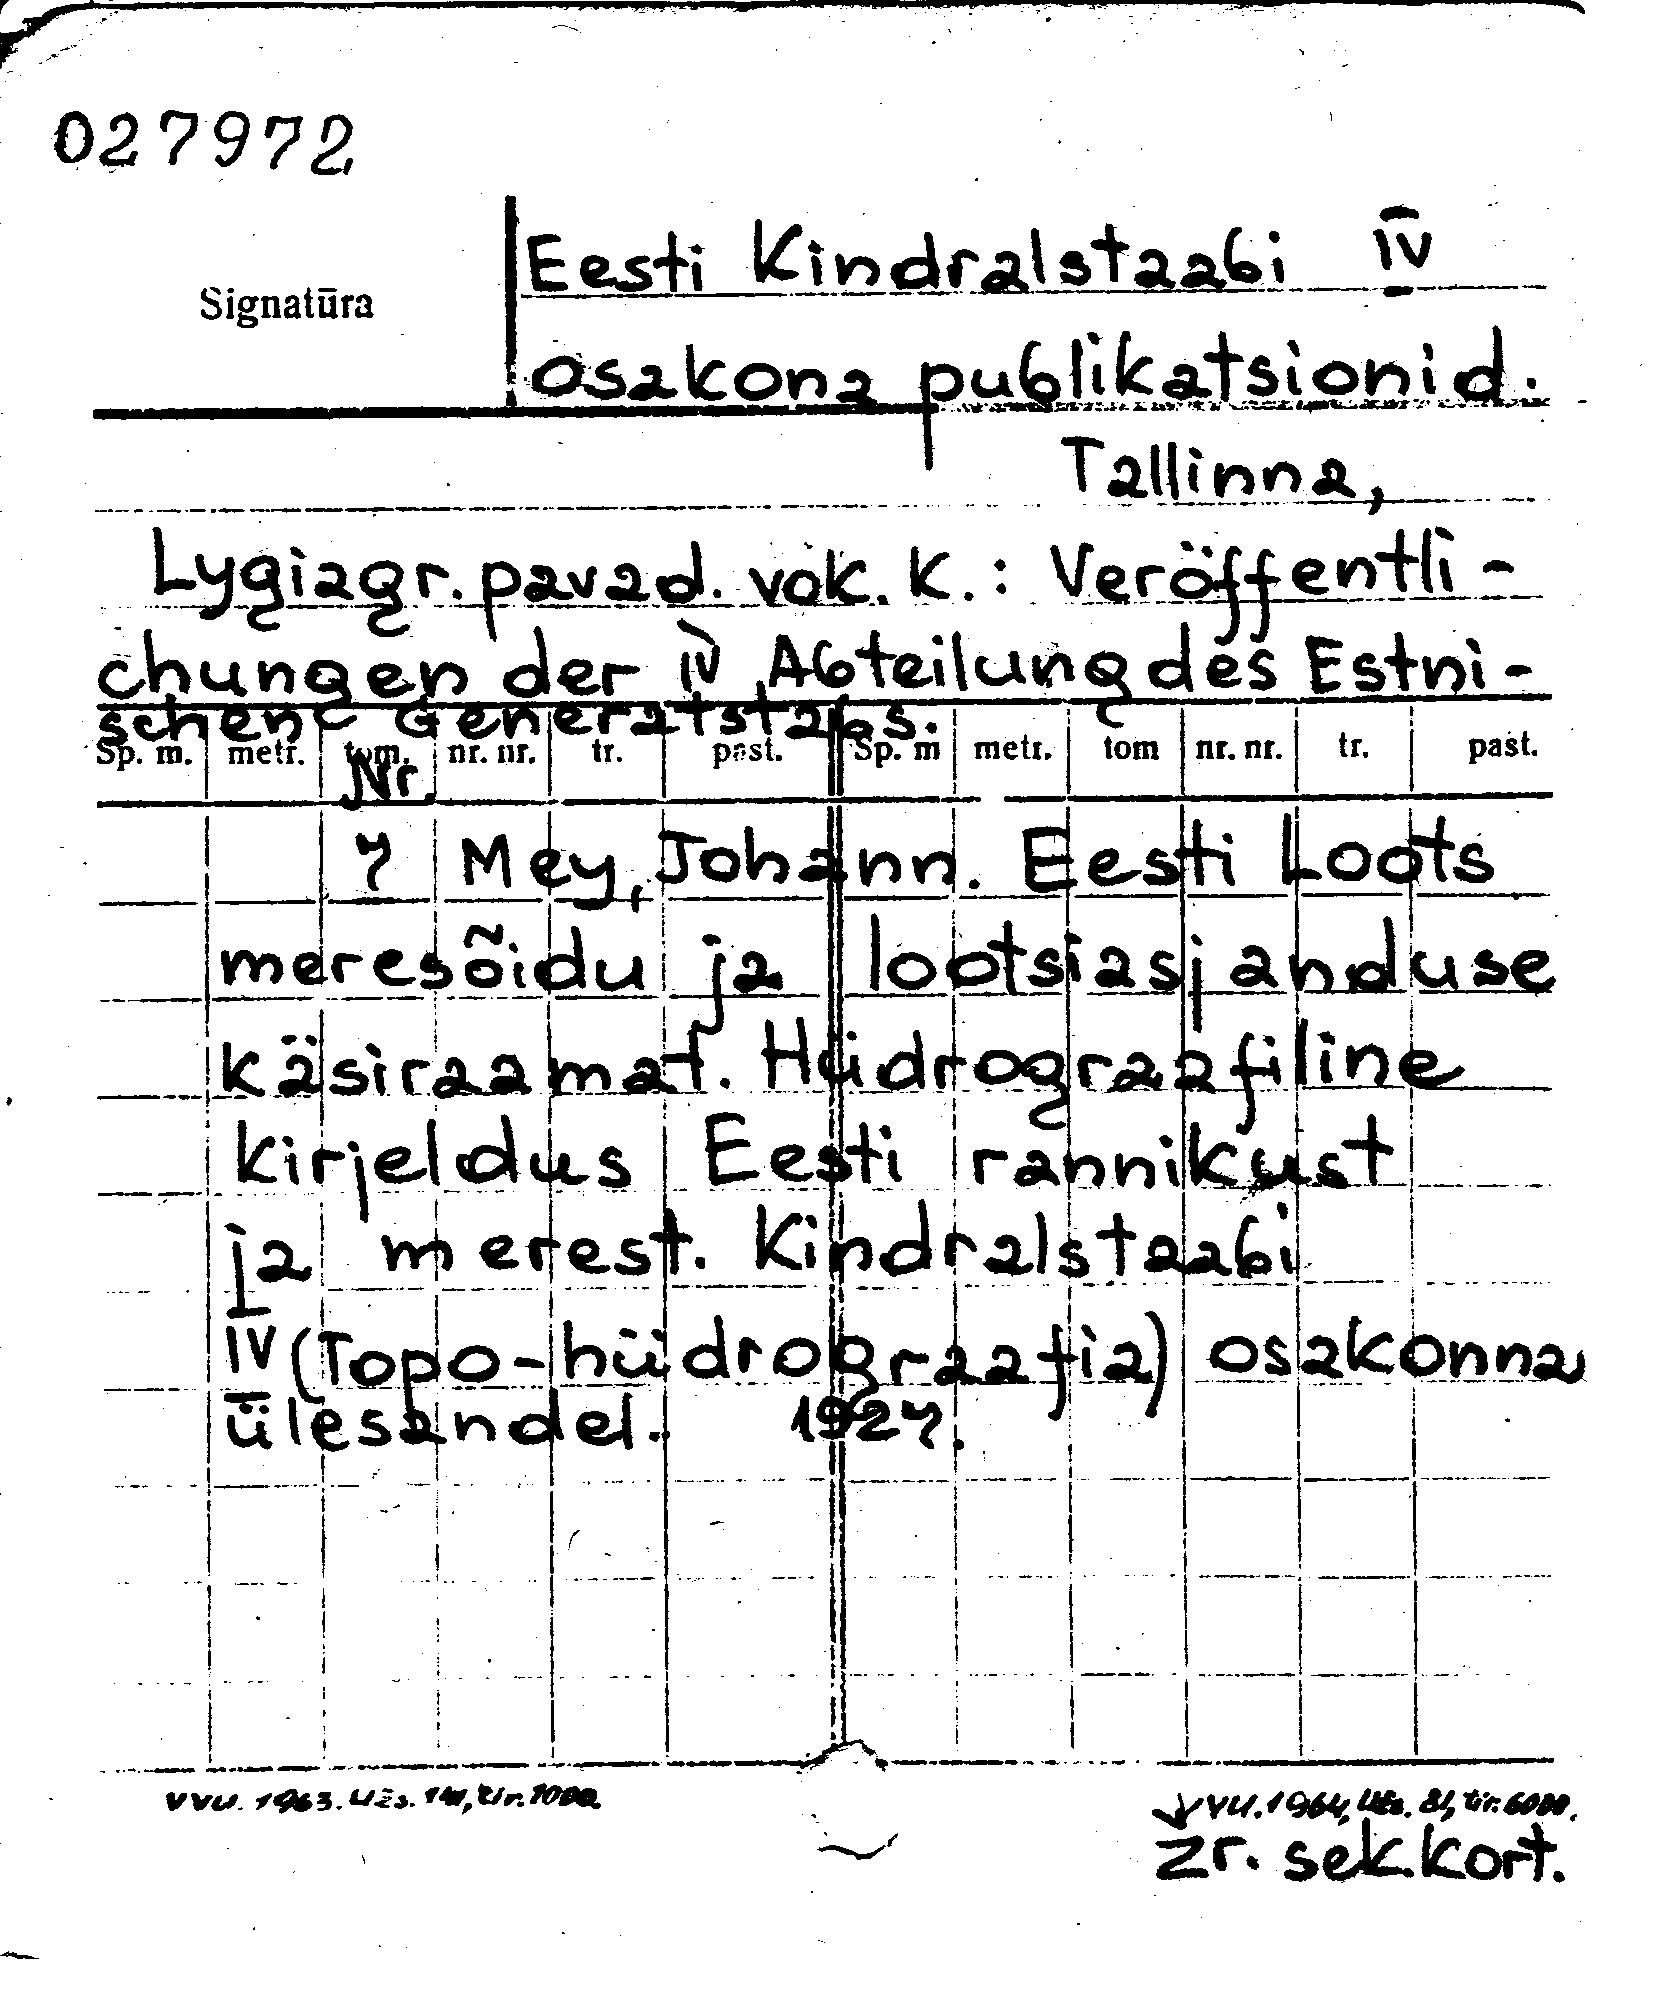 027972
Signatūra
Eesti Kindralstaabi IV
osakona publikatsionid.
Tallinna,
Lygiagr. pavad. vok. k.: Veröffentli-
chungen der IV Abteilung des Estni-
schen Generalstabs.
Sp. m. metr. tom. nr. nr. tr. past. Sp. m metr. tom nr. nr. tr. past.
Nr.
7 Mey, Johann. Eesti Loots
meresõidu ja lootsiasjanduse
käsiraamat. Hüdrograafiline
kirjeldus Eesti rannikust
ja merest. Kindralstaabi
IV (Topo-hüdrograafia) osakonna
ülesandel. 1927.
VVU. 1963. Užs. 141, tir. 1000. VVU. 1964, Užs. 81, tir. 6000.
zr. sek. kort.